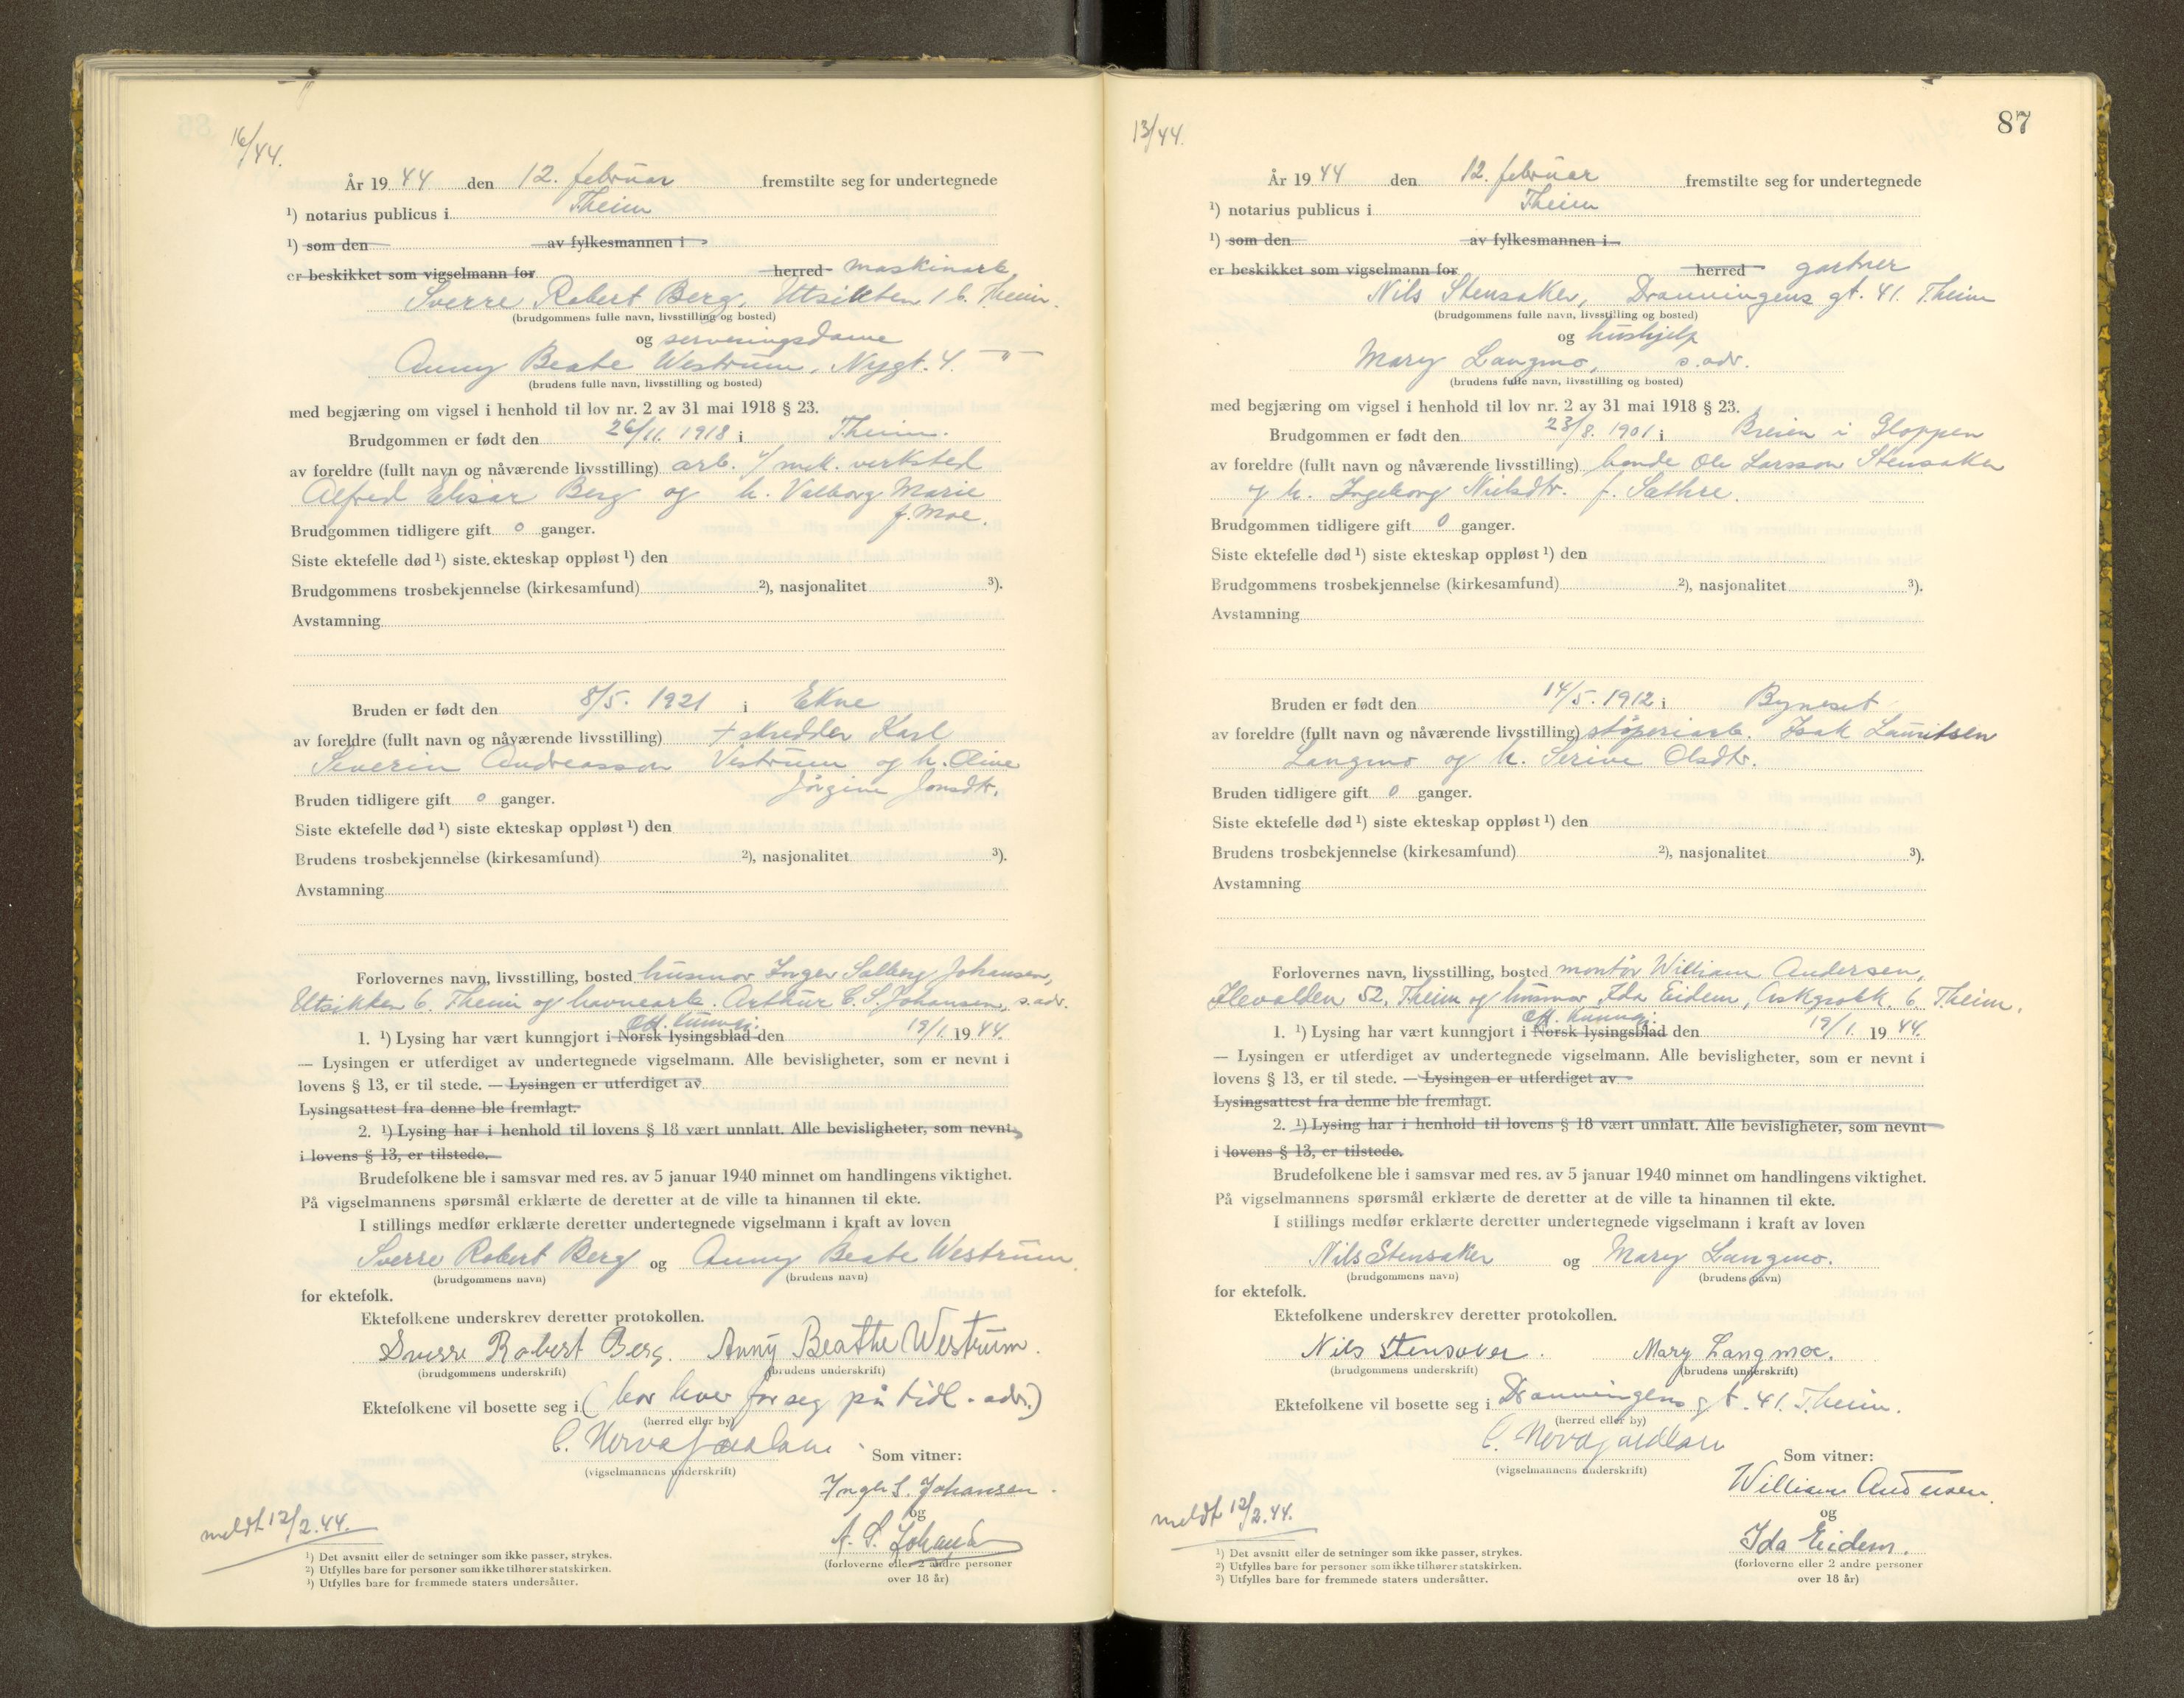 16/44.
År 19 44 den 12. februar fremstilte seg for undertegnede
¹) notarius publicus i Theim
¹) som den av fylkesmannen i
er beskikket som vigselmann for herred maskinarb.
Sverre Robert Berg, Utsikten 6. Theim.
(brudgommens fulle navn, livsstilling og bosted)
og serveringsdame
Anny Beate Westrum, Nygt. 4. — " —
(brudens fulle navn, livsstilling og bosted)
med begjæring om vigsel i henhold til lov nr. 2 av 31 mai 1918 § 23.
Brudgommen er født den 26/11. 1918 i Theim.
av foreldre (fullt navn og nåværende livsstilling) arb. v/ mek. verksted
Alfred Elisar Berg og h. Valborg Marie
f. Moe.
Brudgommen tidligere gift 0 ganger.
Siste ektefelle død ¹) siste ekteskap oppløst ¹) den
Brudgommens trosbekjennelse (kirkesamfund) ²), nasjonalitet ³).
Avstamning
Bruden er født den 8/5. 1921 i Ekne
av foreldre (fullt navn og nåværende livsstilling) + skredder Karl
Severin Andreasson Vestrum og h. Oline
Jørgine Jonsdtr.
Bruden tidligere gift 0 ganger.
Siste ektefelle død ¹) siste ekteskap oppløst ¹) den
Brudens trosbekjennelse (kirkesamfund) ²), nasjonalitet ³).
Avstamning
Forlovernes navn, livsstilling, bosted husmor Inger Solberg Johansen,
Utsikten 6. Theim og havnearb. Arthur C. S. Johansen, s. adr.
Off. kunngj.
1. ¹) Lysing har vært kunngjort i Norsk lysingsblad den 19/1. 19 44.
— Lysingen er utferdiget av undertegnede vigselmann. Alle bevisligheter, som er nevnt i
lovens § 13, er til stede. — Lysingen er utferdiget av
Lysingsattest fra denne ble fremlagt.
2. ¹) Lysing har i henhold til lovens § 18 vært unnlatt. Alle bevisligheter, som nevnt
i lovens § 13, er tilstede.
Brudefolkene ble i samsvar med res. av 5 januar 1940 minnet om handlingens viktighet.
På vigselmannens spørsmål erklærte de deretter at de ville ta hinannen til ekte.
I stillings medfør erklærte deretter undertegnede vigselmann i kraft av loven
Sverre Robert Berg og Anny Beate Westrum.
(brudgommens navn) (brudens navn)
for ektefolk.
Ektefolkene underskrev deretter protokollen.
Sverre Robert Berg. Anny Beathe Westrum.
(brudgommens underskrift) (brudens underskrift)
Ektefolkene vil bosette seg i (bor hver for seg på tidl. adr.)
(herred eller by)
(vigselmannens underskrift)
Som vitner:
Inger S. Johansen.
og
A. S. Johansen
(forloverne eller 2 andre personer
over 18 år)
meldt 12/2.44.
¹) Det avsnitt eller de setninger som ikke passer, strykes.
²) Utfylles bare for personer som ikke tilhører statskirken.
³) Utfylles bare for fremmede staters undersåtter.
87
13/44.
År 19 44 den 12. februar fremstilte seg for undertegnede
¹) notarius publicus i Theim
¹) som den av fylkesmannen i
er beskikket som vigselmann for herred gartner
Nils Stensaker, Dronningens gt. 41. Theim
(brudgommens fulle navn, livsstilling og bosted)
og hushjelp
Mary Langmo, s. adr.
(brudens fulle navn, livsstilling og bosted)
med begjæring om vigsel i henhold til lov nr. 2 av 31 mai 1918 § 23.
Brudgommen er født den 23/8. 1901 i Breien i Gloppen
av foreldre (fullt navn og nåværende livsstilling) bonde Ole Larsson Stensaker
og h. Ingeborg Nielsdtr. f. Sathre.
Brudgommen tidligere gift 0 ganger.
Siste ektefelle død ¹) siste ekteskap oppløst ¹) den
Brudgommens trosbekjennelse (kirkesamfund) ²), nasjonalitet ³).
Avstamning
Bruden er født den 14/5. 1912 i Byneset
av foreldre (fullt navn og nåværende livsstilling) støperiarb. Isak Lauritsen
Langmo og h. Serine Olsdtr.
Bruden tidligere gift 0 ganger.
Siste ektefelle død ¹) siste ekteskap oppløst ¹) den
Brudens trosbekjennelse (kirkesamfund) ²), nasjonalitet ³).
Avstamning
Forlovernes navn, livsstilling, bosted montør William Andersen,
Ilevolden 52, Theim og husmor Ida Eidem, 6. Theim.
Off. kunngj.
1. ¹) Lysing har vært kunngjort i Norsk lysingsblad den 19/1. 19 44.
— Lysingen er utferdiget av undertegnede vigselmann. Alle bevisligheter, som er nevnt i
lovens § 13, er til stede. — Lysingen er utferdiget av
Lysingsattest fra denne ble fremlagt.
2. ¹) Lysing har i henhold til lovens § 18 vært unnlatt. Alle bevisligheter, som nevnt
i lovens § 13, er tilstede.
Brudefolkene ble i samsvar med res. av 5 januar 1940 minnet om handlingens viktighet.
På vigselmannens spørsmål erklærte de deretter at de ville ta hinannen til ekte.
I stillings medfør erklærte deretter undertegnede vigselmann i kraft av loven
Nils Stensaker og Mary Langmo.
(brudgommens navn) (brudens navn)
for ektefolk.
Ektefolkene underskrev deretter protokollen.
Nils Stensaker. Mary Langmoe.
(brudgommens underskrift) (brudens underskrift)
Ektefolkene vil bosette seg i Dronningens gt. 41. Theim.
(herred eller by)
(vigselmannens underskrift)
Som vitner:
William Andersen.
og
Ida Eidem.
(forloverne eller 2 andre personer
over 18 år)
meldt 12/2.44.
¹) Det avsnitt eller de setninger som ikke passer, strykes.
²) Utfylles bare for personer som ikke tilhører statskirken.
³) Utfylles bare for fremmede staters undersåtter.